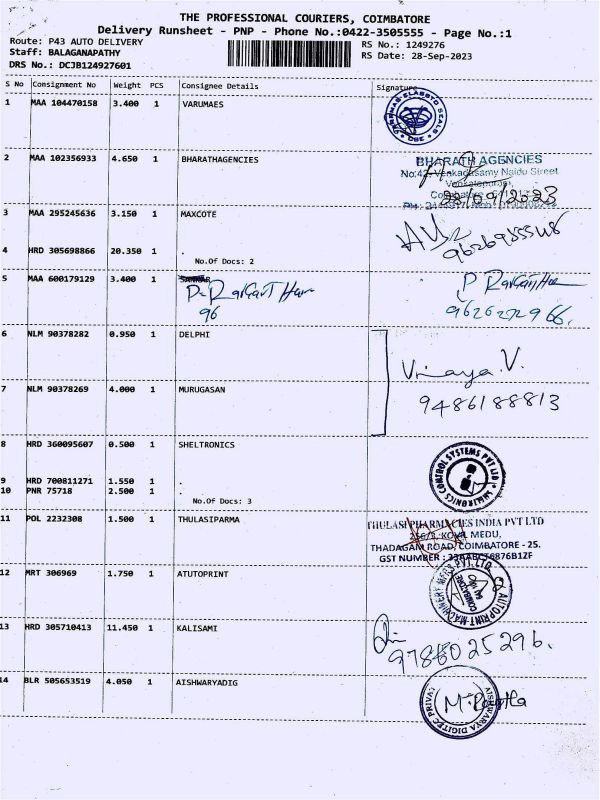 THE PROFESSIONAL COURIERS, COIMBATORE
Delivery Runsheet - PNP - Phone No.:0422-3505555 - Page No.:1
Route: P43 AUTO DELIVERY RS No.: 1249276
Staff: BALAGANAPATHY RS Date: 28-Sep-2023
DRS No.: DCJB124927601
S No Consignment No Weight PCS Consignee Details Signature
1 MAA 104470158 3.400 1 VARUMAES
2 MAA 102356933 4.650 1 BHARATHAGENCIES
BHARATH AGENCIES
No:42, Venkadasamy Naidu Street
Venkatapuram,
3 MAA 295245636 3.150 1 MAXCOTE
4 HRD 305698866 20.350 1
No.Of Docs: 2
5 MAA 600179129 3.400 1
96
6 NLM 90378282 0.950 1 DELPHI
Vinaya.V.
7 NLM 90378269 4.000 1 MURUGASAN
9486188813
8 HRD 360095607 0.500 1 SHELTRONICS
CONTROL SYSTEMS PVT LTD
9 HRD 700811271 1.550 1
10 PNR 75718 2.500 1
No.Of Docs: 3
11 POL 2232308 1.500 1 THULASIPARMA
THULASI PHARMACIES INDIA PVT LTD
256/3, KOVIL MEDU,
THADAGAM ROAD, COIMBATORE - 25.
GST NUMBER : 33AABCT6876B12F
12 MRT 306969 1.750 1 ATUTOPRINT
13 HRD 305710413 11.450 1 KALISAMI
14 BLR 505653519 4.050 1 AISHWARYADIG